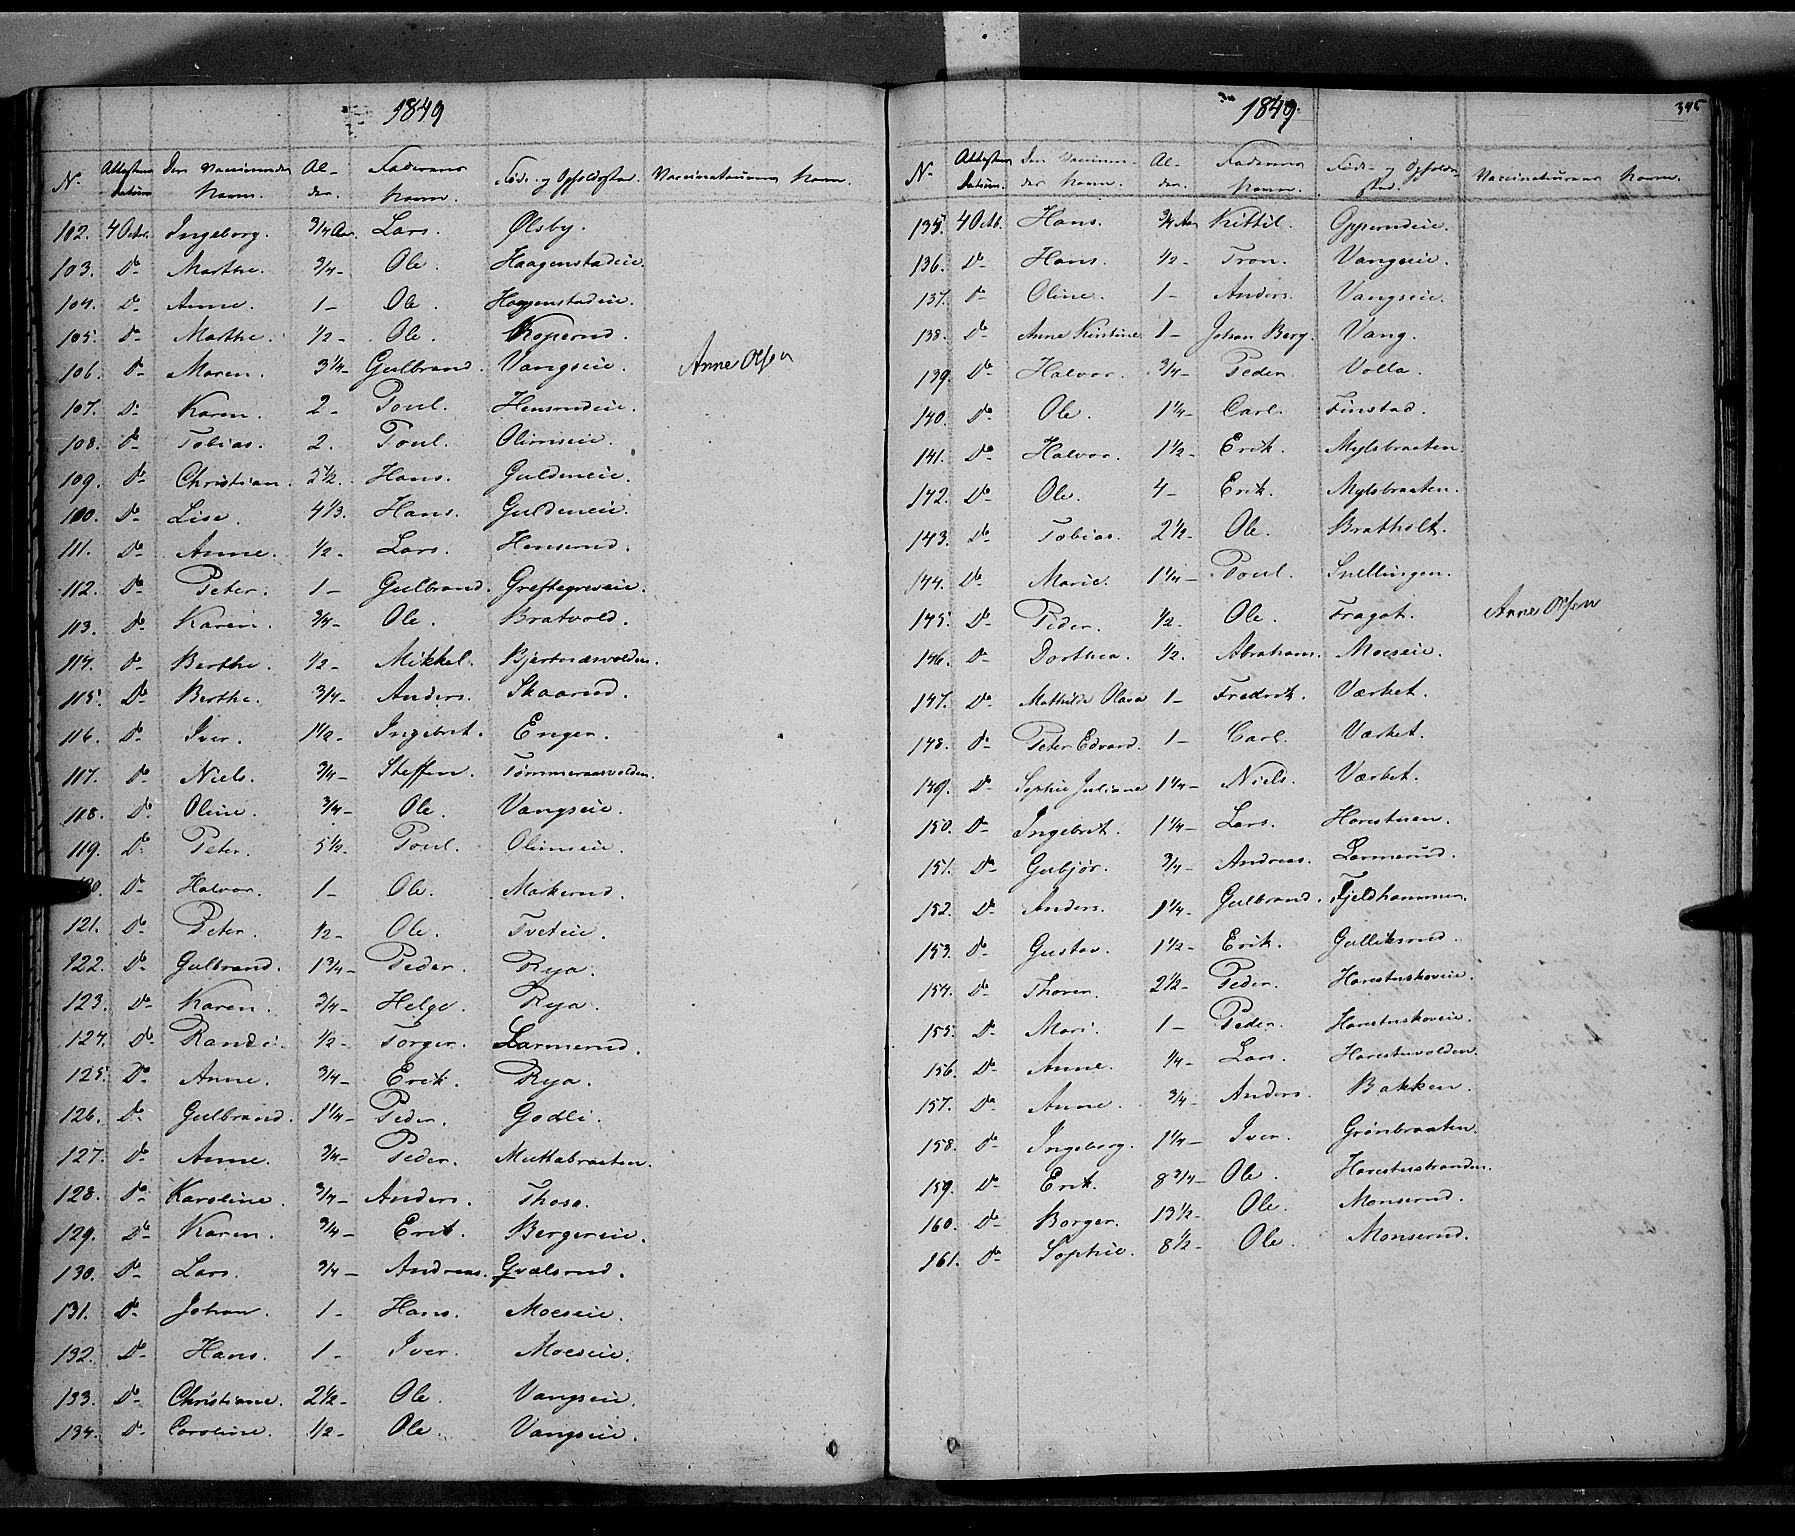 1849
N. Attestens Datum Den Vaccineredes Navn. Al-der. Faderens Navn. Føde- og Opholdssted. Vaccinateurens Navn.
102. 4 Octr. Ingeborg. 3/4 Aar. Lars. Ølsby.
103. Do Marthe. 3/4 - Ole. Haagenstadeie.
104. Do Anne. 1 - Ole. Haagenstadeie.
105. Do Marthe. 1/2 - Ole. Koperud.
106. Do Maren. 3 1/4 - Gulbrand. Vangseie. Anne Olsen
107. Do Karen. 2 - Poul. Hensrudeie.
108. Do Tobias. 2. Poul. Olimseie.
109. Do Christian. 5 1/2. Hans. Guldeneie.
100. Do Lise. 4 1/3. Hans. Guldeneie.
111. Do Anne. 1/2 - Lars. Henserud.
112. Do Peter. 1 - Gulbrand. Greftegreveie.
113. Do Karen. 3/4 - Ole. Bratvold.
114. Do Berthe. 1/2 - Mikkel. Bjertnæsvolden.
115. Do Berthe. 3/4 - Anders. Skaarud.
116. Do Iver. 1 1/2 - Ingebret. Enger.
117. Do Niels. 3/4 - Steffen. Tømmeraasvolden.
118. Do Oline. 3/4 - Ole. Vangseie.
119. Do Peter. 5 1/2 - Poul. Olimseie.
120. Do Halvor. 1 - Ole. Makerud.
121. Do Peter. 1/2 - Ole. Tveteie.
122. Do Gulbrand. 1 3/4 - Peder. Rya.
123. Do Karen. 3/4 - Helge. Rya.
124. Do Randi. 1/2 - Torger. Larmerud.
125. Do Anne. 3/4 - Erik. Rya.
126. Do Gulbrand. 1 1/4 - Peder. Godli.
127. Do Anne. 3/4 - Peder. Muttabraaten.
128. Do Karoline. 3/4 - Anders. Thoso.
129. Do Karen. 3/4 - Erik. Bergereie.
130. Do Lars. 3/4 - Andreas. Gvælsrud.
131. Do Johan. 1 - Hans. Moeseie.
132. Do Hans. 1 - Iver. Moeseie.
133. Do Christiane. 2 1/2 - Ole. Vangseie.
134. Do Caroline. 1/2 - Ole. Vangseie.
1849. 345
N. Attestens Datum. Den Vaccineredes Navn. Al-der. Faderens Navn. Føde- og Opholdssted. Vaccinateurens Navn.
135. 4 Octb. Hans. 3/4 Aar Kittil. Opperudeie.
136. Do Hans. 1/2 - Tron. Vangseie.
137. Do Oline. 1 - Anders. Vangseie.
138. Do Anne Kirstine. 1 - Johan Berg. Vang.
139. Do Halvor. 3/4 - Peder. Volla.
140. Do Ole. 1 1/4 - Carl. Finstad.
141. Do Halvor. 1 1/2 - Erik. Mylsbraaten.
142. Do Ole. 4 - Erik. Mylsbraaten.
143. Do Tobias. 2 1/2 - Ole. Bratholt.
144. Do Marie. 1 1/4 - Poul. Snellingen.
145. Do Peder. 1/2 - Ole. Fragot. Anne Olsen
146. Do Dorthea. 1/2. Abraham. Moeseie.
147. Do Mathilde Olava 1 - Fredrik. Værket.
148. Do Peter Edvard. 1 - Carl. Værket.
149. Do Sophie Juliane 1 1/4 - Niels. Værket.
150. Do Ingebret. 1 1/4 - Lars. Harestuen.
151. Do Gubjør. 3/4 - Andreas. Larmerud.
152. Do Anders. 1 1/4 - Gulbrand. Fjeldhammer.
153. Do Gustav. 1 1/2 - Erik. Gulliksrud.
154. Do Thorer. 2 1/2 - Peder. Harestuskoveie.
155. Do Mari. 1 - Peder. Harestuskoveie.
156. Do Anne. 1/4 - Lars. Harestuvolden.
157. Do Anne. 3/4 - Anders. Bakken.
158. Do Ingeborg. 1 1/4 - Iver. Grønbraaten.
159. Do Erik. 8 3/4 - Ole. Harestustranden.
160. Do Borger. 13 1/2 - Ole. Monserud.
161. Do Sophie. 8 1/2 - Ole. Monserud.